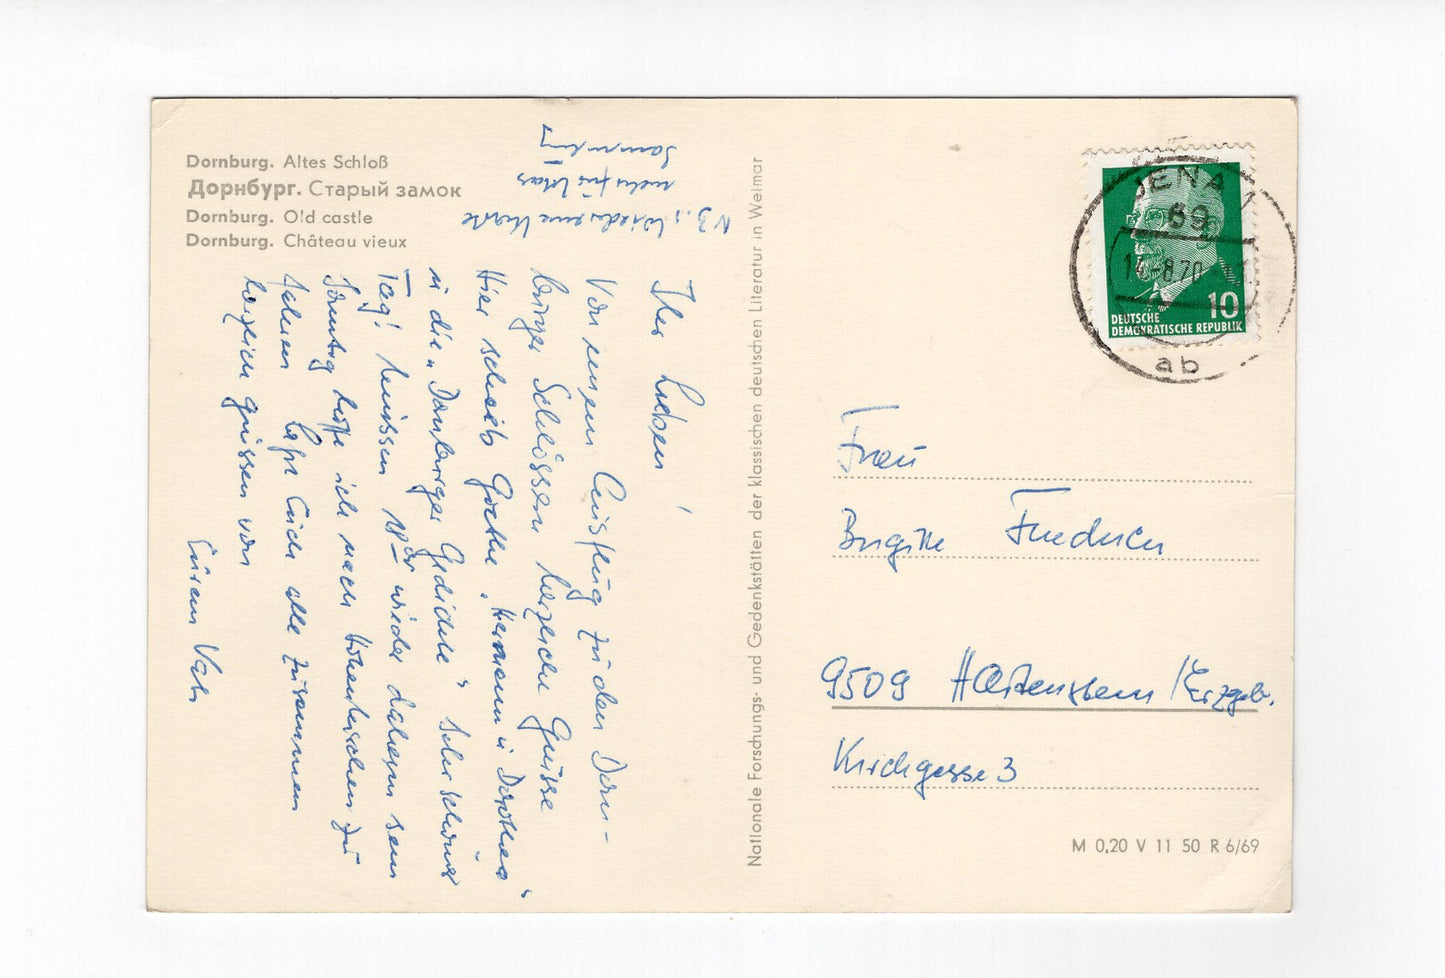 Dornburg. Altes Schloß
Дорнбург. Старый замок
Dornburg. Old castle
Dornburg. Château vieux
N.B.: Wieder eine Karte
mehr für Utas
Sammlung
Ihr Lieben!
Von unserem Ausflug zu den Dorn-
burger Schlössern herzliche Grüsse
Hier schrieb Goethe „Hermann u. Dorothea"
u. die „Dornburger Gedichte". Sehr schöner
Tag! Müssen 18⁰⁰ wieder daheim sein
Sonntag hoffe ich nach zu
sehen. Lasst Euch alle zusammen
herzlich grüssen von
Eurem Vati
Nationale Forschungs- und Gedenkstätten der klassischen deutschen Literatur in Weimar
JENA 1
69
14.-8.70
ab
10
DEUTSCHE
DEMOKRATISCHE REPUBLIK
Frau
Brigitte Friedrich
9509 Hartenstein /Erzgeb.
Kirchgasse 3
M 0,20 V 11 50 R 6/69